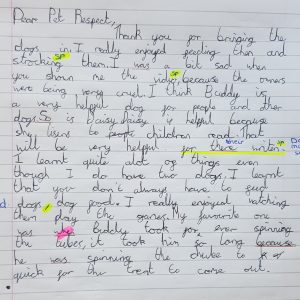 Dear Pet Respect,
Thank you for bringing the
dogs in. I really enjoyed greeting them and
strocking them. I was a bit sad when
you shown me the vidio because the owners
were being very cruel. I think Buddy is
a very helpful dog for people and other
dogs. So is Daisy. Daisy is helpful because
she lisens to people children read. That
will be very helpful for there writen.
I learnt quite alot of things even
though I do have two dogs. I learnt
that you don't always have to feed
dogs dog good. I really enjoyed watching
them play the games. My favourite one
was Buddy took for ever spinning
the tubes, it took him so long because
he was spinning the chube to
quick for the treat to come out.